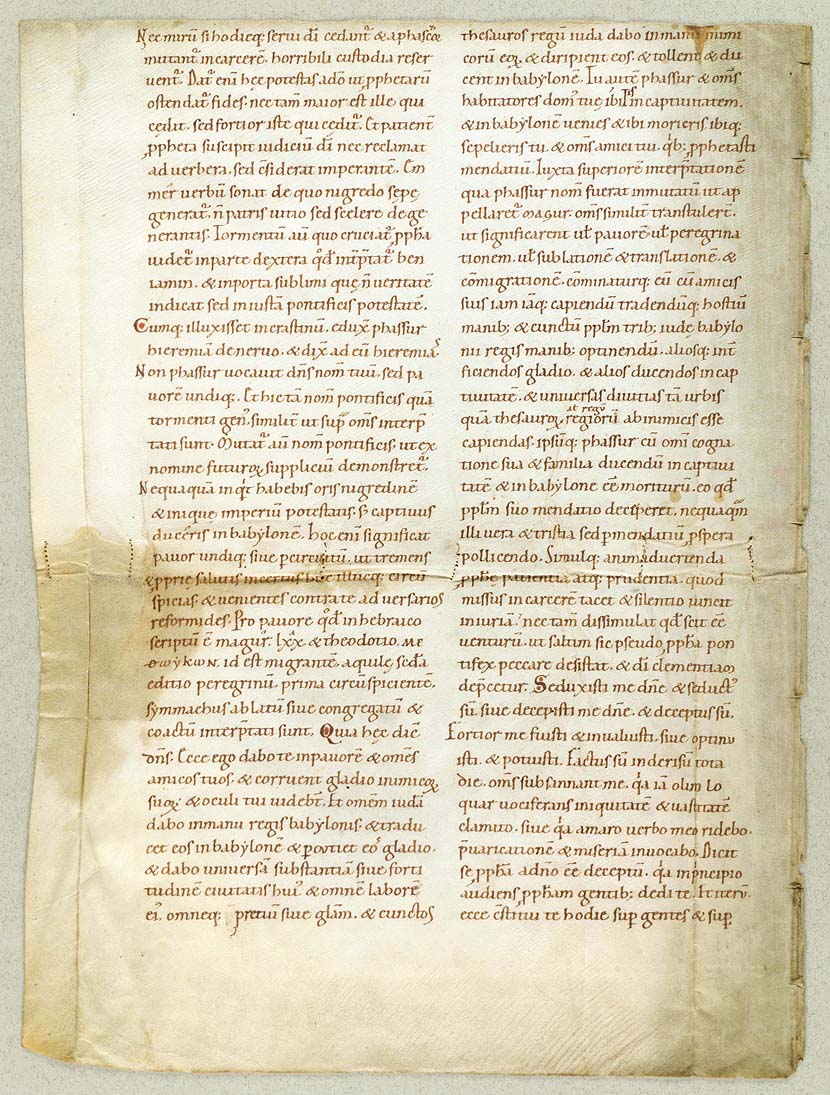 Nec mirũ si hodieq; serui dĩ cedunt̃ & a phascõr
mittant̃ in carcerẽ. horribili custodia reser
uent̃. Dat̃ enĩ hęc potestas adõ ut ꝓphetarũ
ostendat̃ fides. nec tam̃ maior est ille qui
cędit. sed fortior iste qui cędit̃. Et patient̃
ꝓpheta suscipit iudiciũ dĩ nec reclamat
ad uerbera. sed c̃siderat imperantẽ. Em
mer̃ uerbũ sonat de quo nigredo sępe
generat̃. ñ patris uitio sed scelere dege
nerantis. Tormentũ aũ quo cruciat̃ ꝓpħa
uidet̃ in parte dextera qd̃ int̃pt̃at̃ ben
iamin. & in porta sublimi quę ñ ueritatẽ
indicat sed iniustã pontificis potestatẽ.
Cumq; illuxisset in crastinũ. eduxˀ phassur
hieremiã de neruo. & dixˀ ad eũ hieremiaˀ.
Non phassur uocauit dñs nom̃ tuũ. sed pa
uorẽ undiq;. Et hic tã nom̃ pontificis quã
tormenti genˀ. similit̃ ut supˀ om̃s int̃p̃
tati sunt. Mutat̃ aũ nom̃ pontificis. ut ex
nomine futuroꝝ suppliciũ demonstret̃.
Nequaquã inqˀt habebis oris nigredinẽ
& iniquę imperiũ potestatis. s̃ captiuus
ducẽris in babẏlonẽ. Hoc enĩ significat
pauor undiq; siue ut tremens
& ꝓprię salutis incertus huc illucq; circũ
spicias. & uenientes contra te aduersarios
reformides. Pro pauore qd̃ in hebraico
scriptũ ẽ magur. lxˣx. & theodotio. ᴍᴇ
ѳωẏᴋωɴ. id est migrantẽ. aquilę sed̃a
editio peregrinũ. prima circũspicientẽ.
sẏmmachus ablatũ siue congregatũ &
coactũ int̃pt̃ati sunt. Quia hęc dic̃
dñs. Ecce ego dabo te in pauorẽ & om̃es
amicos tuos. & corruent gladio inimicoꝝ
suoꝝ. & oculi tui uidebt̃. Et omẽm iudã
dabo in manu regis babẏlonis. & tradu
cet eos in babẏlonẽ & ꝑcutiet eoˢ gladio.
& dabo uniuersã substantiã siue forti
tudinẽ ciuitatis huiˀ & omnẽ laborẽ
eiˀ. omneq; pretiũ siue glãm. & cunctos
thesauros regũ iuda dabo in manu inimi
corũ eoꝝ & diripient eos. & tollent̃ & du
cent in babẏlonẽ. Tu autẽ phassur & om̃s
habitatores domˀ tuę ibitis in captiuitatem.
& in babẏlonẽ uenies & ibi morieris ibiq;
sepelieris tu. & om̃s amici tui. qˀb; ꝓphetasti
mendatiũ. Iuxta superiorẽ int̃p̃tationẽ
qua phassur nom̃ fuerat inmutatũ ut ap
pellaret̃ magur. om̃s similit̃ transtulert̃.
ut significarent ul̃ pauorẽ ul̃ peregrina
tionem. ul̃ sublationẽ & translationẽ. &
cõmigrationẽ. cõminaturq; eũ cũ amicis
suis iam iãq; capiendũ tradendũq; hostiũ
manib; & cunctũ ppl̃m trib; iudę babẏlo
nii regis manib; optinendũ. aliosq; int̃
ficiendos gladio. & alios ducendos in cap
tiuitatẽ. & uniuersas diuitias tã urbis
quã thesauroꝝ. ul̃ regũ regiorũ ab inimicis esse
capiendas. ipsũq; phassur cũ omĩ cogna
tione sua & familia ducendũ in captiui
tatẽ & in babẏlone ẽẽ moriturũ. eo qd̃
ppl̃m suo mendatio deciperet. nequaqˀm
illi uera & tristia sed ꝑ mendatiũ ꝓspera
pollicendo. Simulq; animaduertenda
ꝓphę patientia atq; prudentia. quod
missus in carcerẽ tacet & silentio uincit
iniuriã. nec tam̃ dissimulat qd̃ scit ẽẽ
uenturũ. ut saltim sic pseudoꝓpħa pon
tifex peccare desistat. & dĩ clementiam
dep̃cetur. Seduxisti me dñe. & seductˀ
sũ. siue decepisti me dñe. & deceptus sũ.
Fortior me fuisti & inualuisti. siue optinu
isti. & potuisti. Factus sũ in derisũ tota
die. om̃s subsannant me. qˀa iã olim lo
quor uociferans iniquitatẽ & uastitatẽ
clamito. siue qˀa amaro uerbo meo ridebo.
p̃uaricationẽ & miseriã inuocabo. Dicit
se ꝓpħa a dño ẽẽ deceptũ. qˀa in pˀncipio
audiens ꝓpħam gentib; dedi te. Et iterũ.
ecce c̃stitui te hodie suꝑ gentes & suꝑ